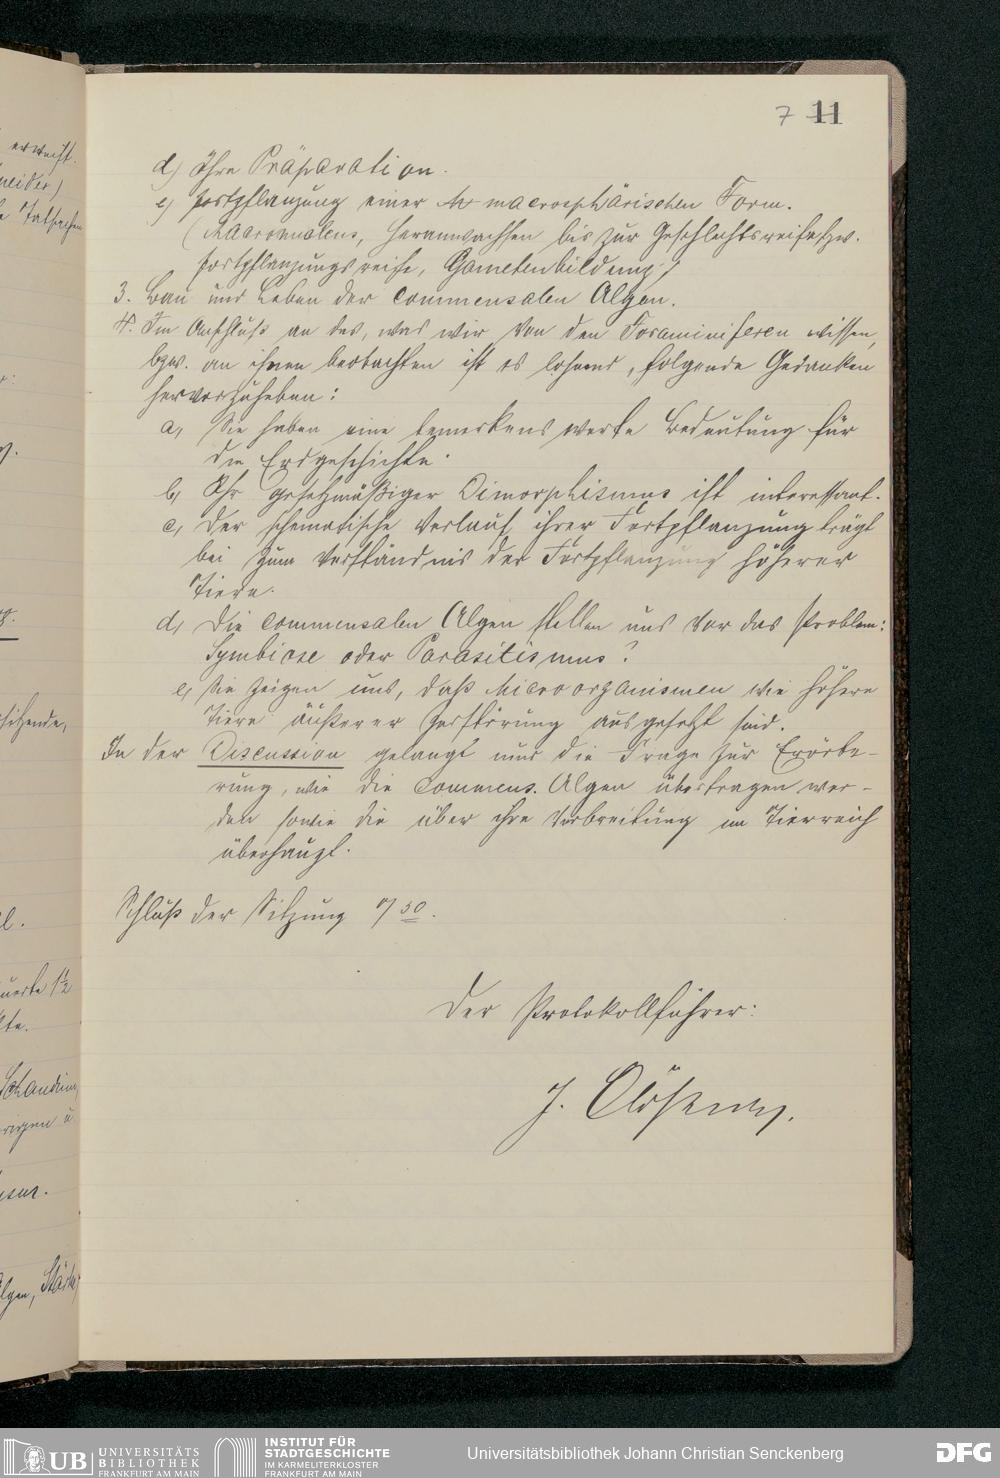 7 11
d) Ihre Präparation.
e) Fortpflanzung einer macrosphärischen Form.
(Macronucleus, Heranwachsen bis zur Geschlechtsreife bzw.
Fortpflanzungsreife, Gametenbildung.)
3. Bau und Leben der commensalen Algen.
4. Im Anschluß an das, was wir von den Foraminiferen wissen,
bzw. an ihnen beobachten ist es lohnend, folgende Gedanken
hervorzuheben:
a, Sie haben eine bemerkenswerte Bedeutung für
die Erdgeschichte.
b, Ihr gesetzmäßiger Dimorphismus ist interessant.
c, Der schematische Verlauf ihrer Fortpflanzung trägt
bei zum Verständnis der Fortpflanzung höherer
Tiere.
d, Die commensalen Algen stellen uns vor das Problem:
Symbiose oder Parasitismus?
e, Sie zeigen uns, daß Microorganismen wie höhere
Tiere äußerer Zerstörung ausgesetzt sind.
In der Discussion gelangt nun die Frage zur Erörte-
rung, wie die commens. Algen übertragen wer-
den sowie die über ihre Verbreitung im Tierreich
überhaupt.
Schluß der Sitzung 7 50.
Der Protokollführer:
J.
erweist.
Tatsachen
Algen, Stärke
UB UNIVERSITÄTS
BIBLIOTHEK
FRANKFURT AM MAIN
INSTITUT FÜR
STADTGESCHICHTE
IM KARMELITERKLOSTER
FRANKFURT AM MAIN
Universitätsbibliothek Johann Christian Senckenberg
DFG